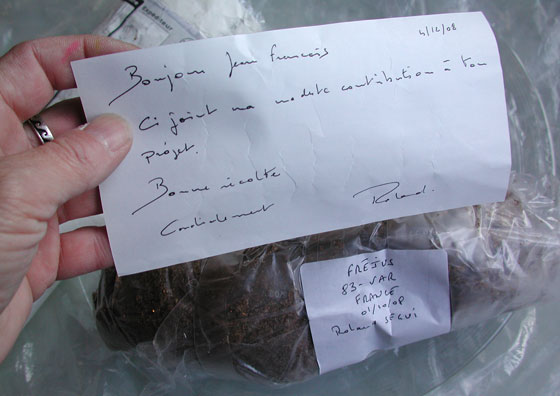 4/12/08
Bonjour Jean François
Ci joint ma modeste contribution à ton
projet.
Bonne récolte
Cordialement
Roland.
FRÉJUS
83-VAR
FRANCE
01/10/08
Roland SEGUI